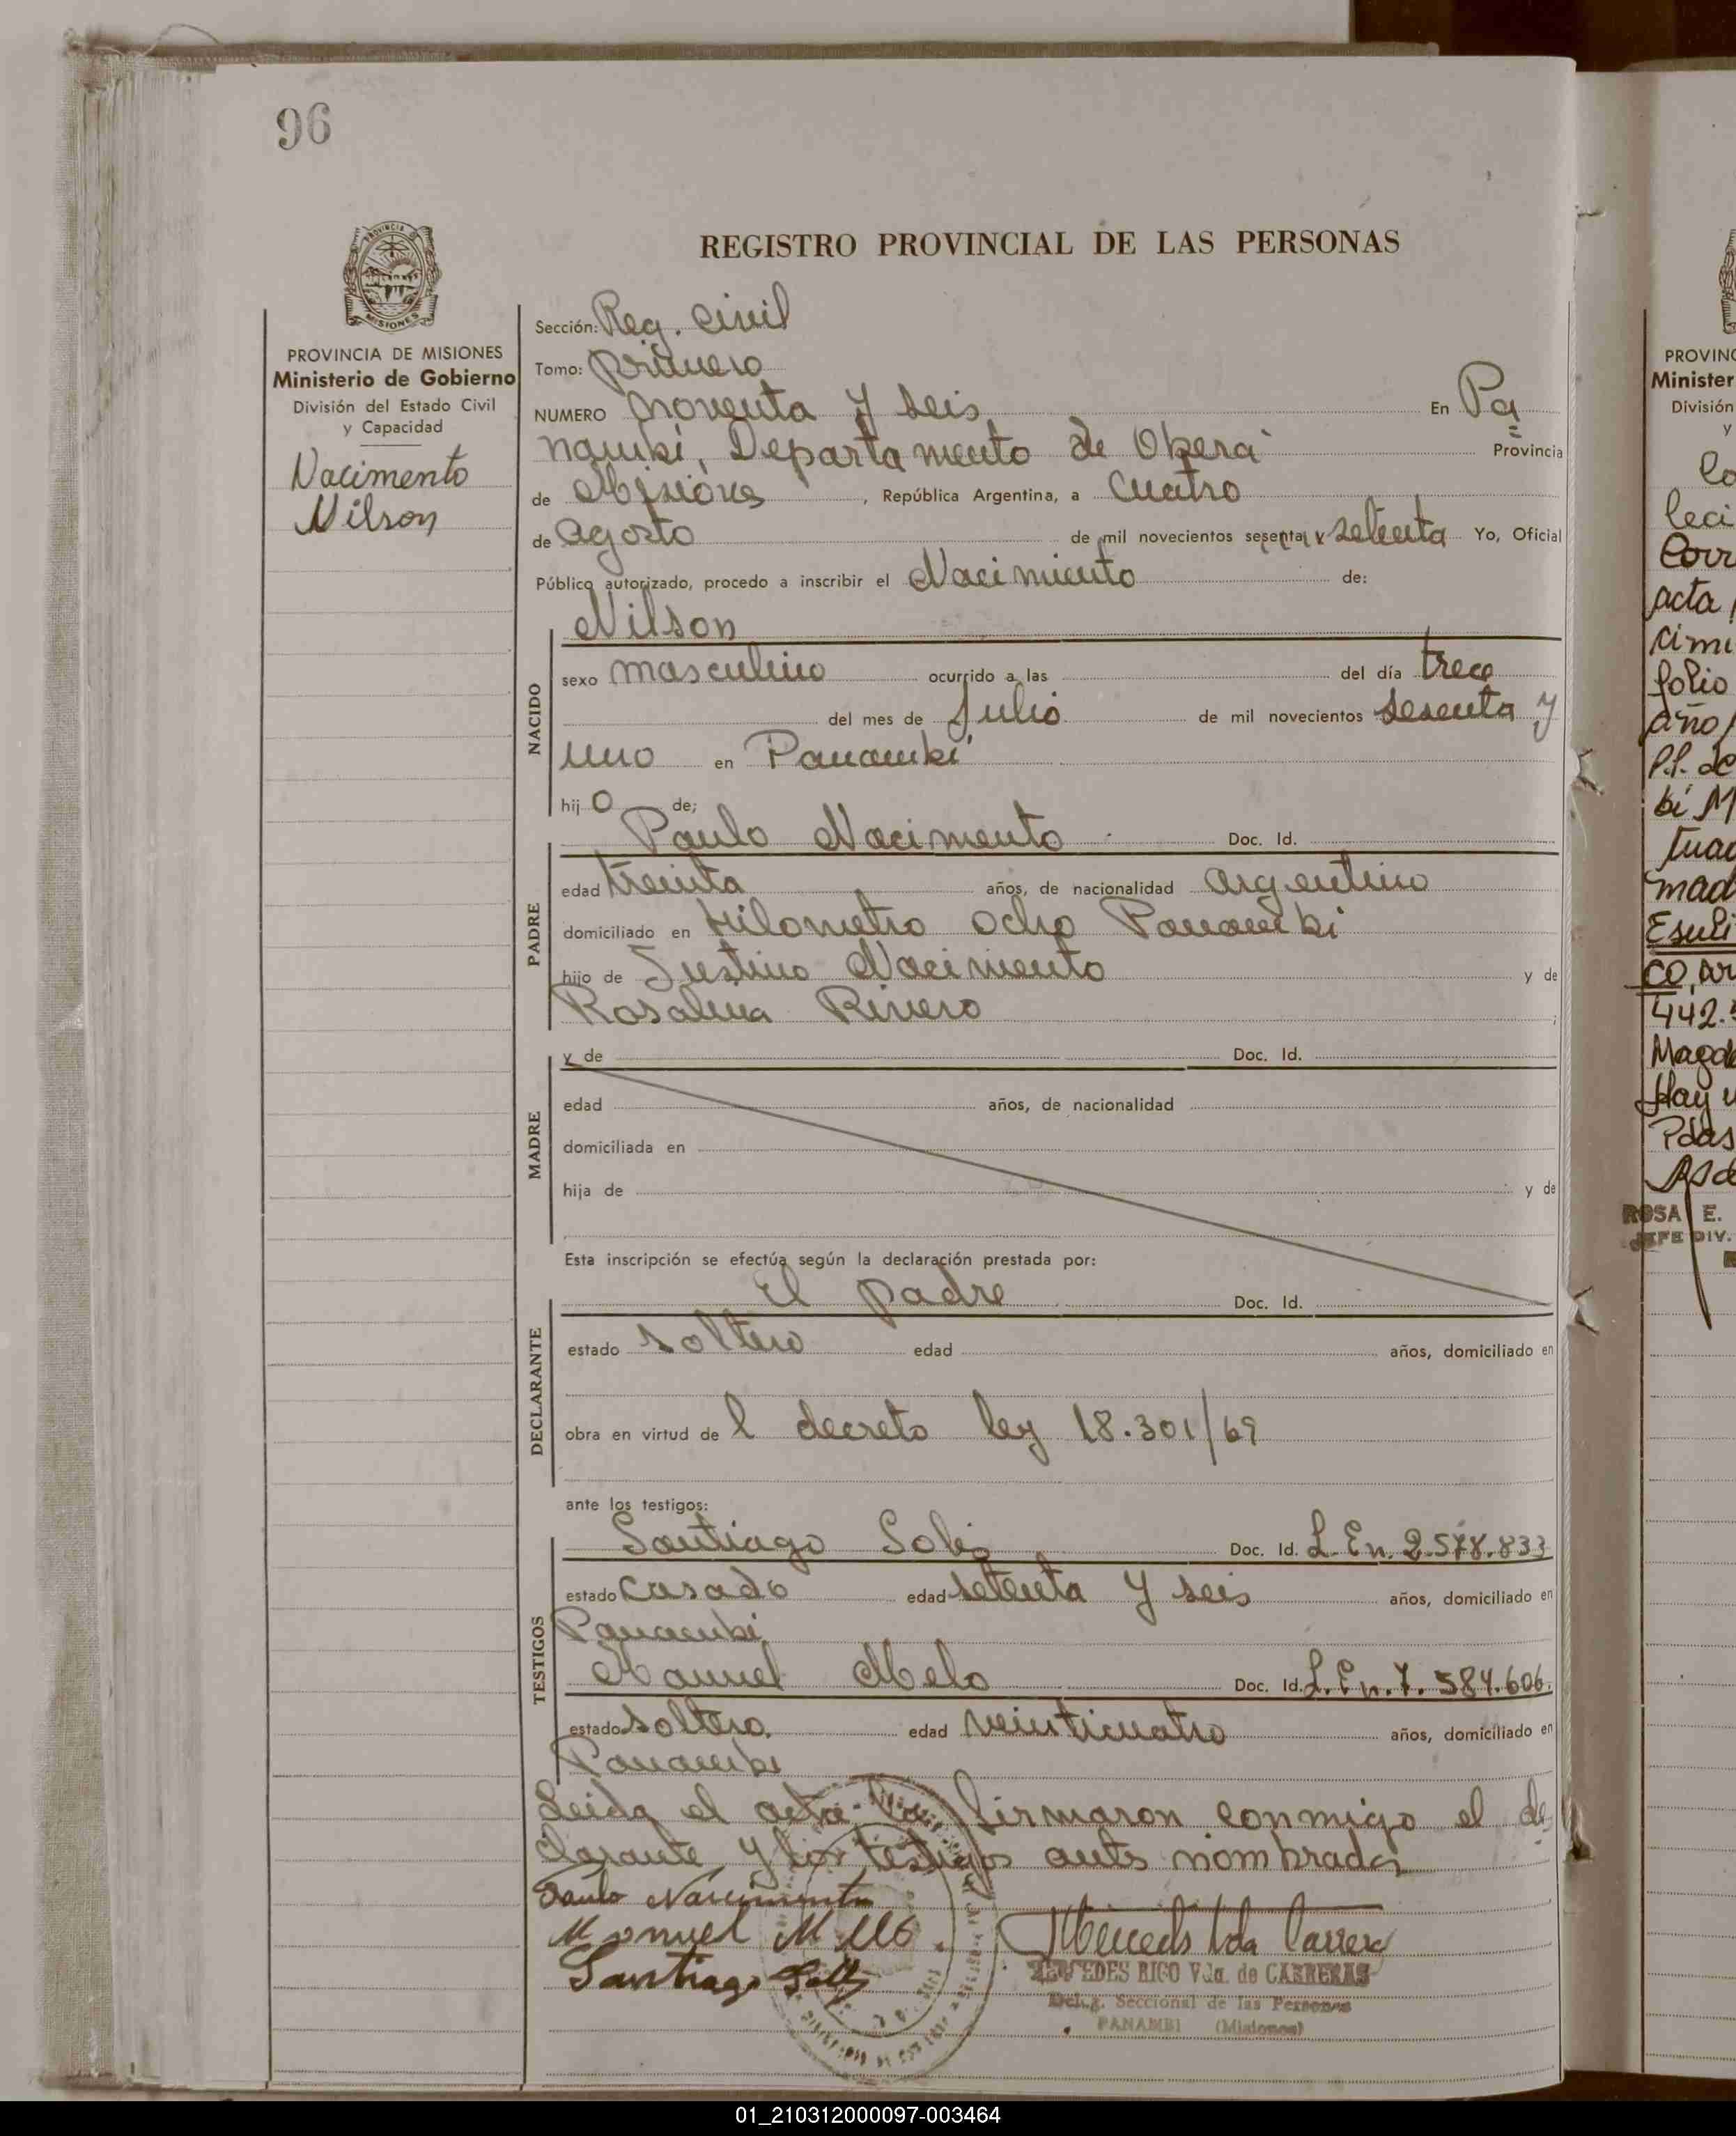 96
REGISTRO PROVINCIAL DE LAS PERSONAS
PROVINCIA DE MISIONES
Ministerio de Gobierno
División del Estado Civil
y Capacidad
Nacimento
Nilson
Sección: Reg. Civil
Tomo: primero
NUMERO noventa y seis En Pa
nambí, Departamento de Oberá Provincia
de Misiones, República Argentina, a Cuatro
de agosto de mil novecientos sesenta y setenta Yo, Oficial
Público autorizado, procedo a inscribir el Nacimiento de:
Nilson
NACIDO
sexo masculino ocurrido a las del día trece
del mes de Julio de mil novecientos sesenta y
uno en Panambí
hij o de;
PADRE
Paulo Nacimento Doc. Id.
edad treinta años, de nacionalidad argentino
domiciliado en Kilometro ocho Panambi
hijo de Justino Nacimento y de
Rosalina Rivero
MADRE
y de Doc. Id.
edad años, de nacionalidad
domiciliada en
hija de y de
Esta inscripción se efectúa según la declaración prestada por:
DECLARANTE
El padre Doc. Id.
estado soltero edad años, domiciliado en
obra en virtud de l decreto ley 18.301/69
ante los testigos:
TESTIGOS
Santiago Doc. Id. L. En. 2.578.833
estado casado edad setenta y seis años, domiciliado en
Panambi
Manuel Melo Doc. Id. L. En. 7.584.606.
estado soltero. edad veinticuatro años, domiciliado en
Panambi
Leida el acta la firmaron conmigo el de
clarante y los testigos antes nombrados
Paulo Nacimento
Manuel M
Santiago
Mercedes Vda Carrera
MERCEDES RICO Vda. de CARRERAS
Deleg. Seccional de las Personas
PANAMBI (Misiones)
PROVINC
Minister
División
y
Corr
acta
cimi
folio
año
bi M
mad
442.
Magda
Hay u
ROSA E.
JEFE DIV.
01_210312000097-003464